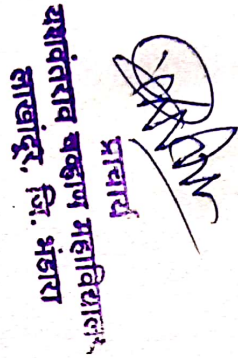 प्राचार्य
यशवंतराव चव्हाण महाविद्यालय,
लाखांदूर, जि. भंडारा